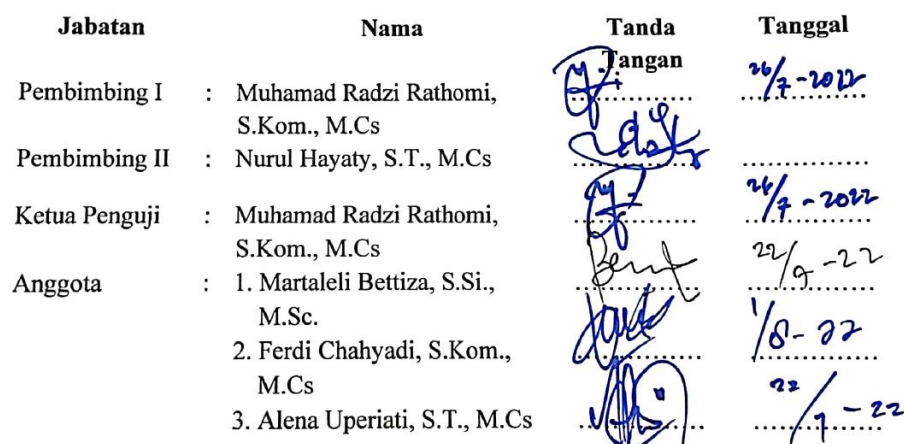 Jabatan Nama Tanda Tangan Tanggal
Pembimbing I : Muhamad Radzi Rathomi, 26/7-2022
S.Kom., M.Cs
Pembimbing II : Nurul Hayaty, S.T., M.Cs
Ketua Penguji : Muhamad Radzi Rathomi, 26/7-2022
S.Kom., M.Cs
Anggota : 1. Martaleli Bettiza, S.Si., 22/9-22
M.Sc.
2. Ferdi Chahyadi, S.Kom., 1/8-22
M.Cs
3. Alena Uperiati, S.T., M.Cs